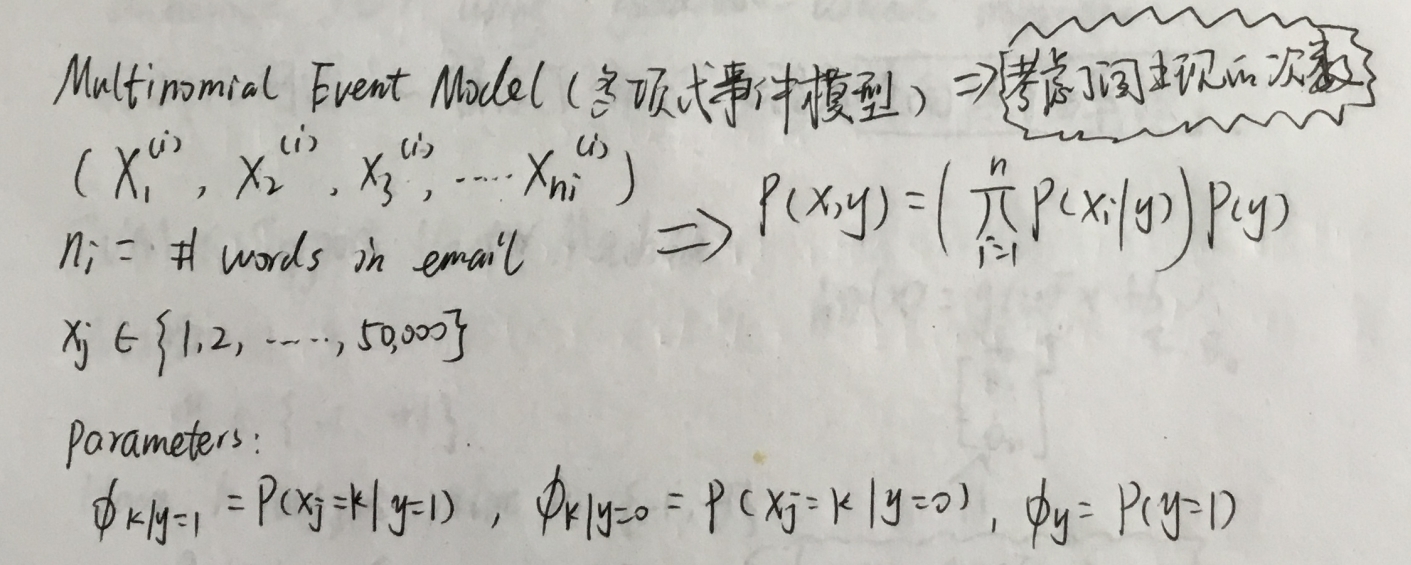 Multinomial Event Model (多项式事件模型) ⇒ 考虑了词出现的次数
(X₁⁽ⁱ⁾, X₂⁽ⁱ⁾, X₃⁽ⁱ⁾, ..... Xₙᵢ⁽ⁱ⁾)
nᵢ = # words in email ⇒ P(x,y) = (∏ᵢ₌₁ⁿ P(xᵢ|y)) P(y)
xⱼ ∈ {1,2, ....., 50,000}
Parameters:
ϕ_{k|y=1} = P(xⱼ=k|y=1), ϕ_{k|y=0} = P(xⱼ=k|y=0), ϕ_y = P(y=1)